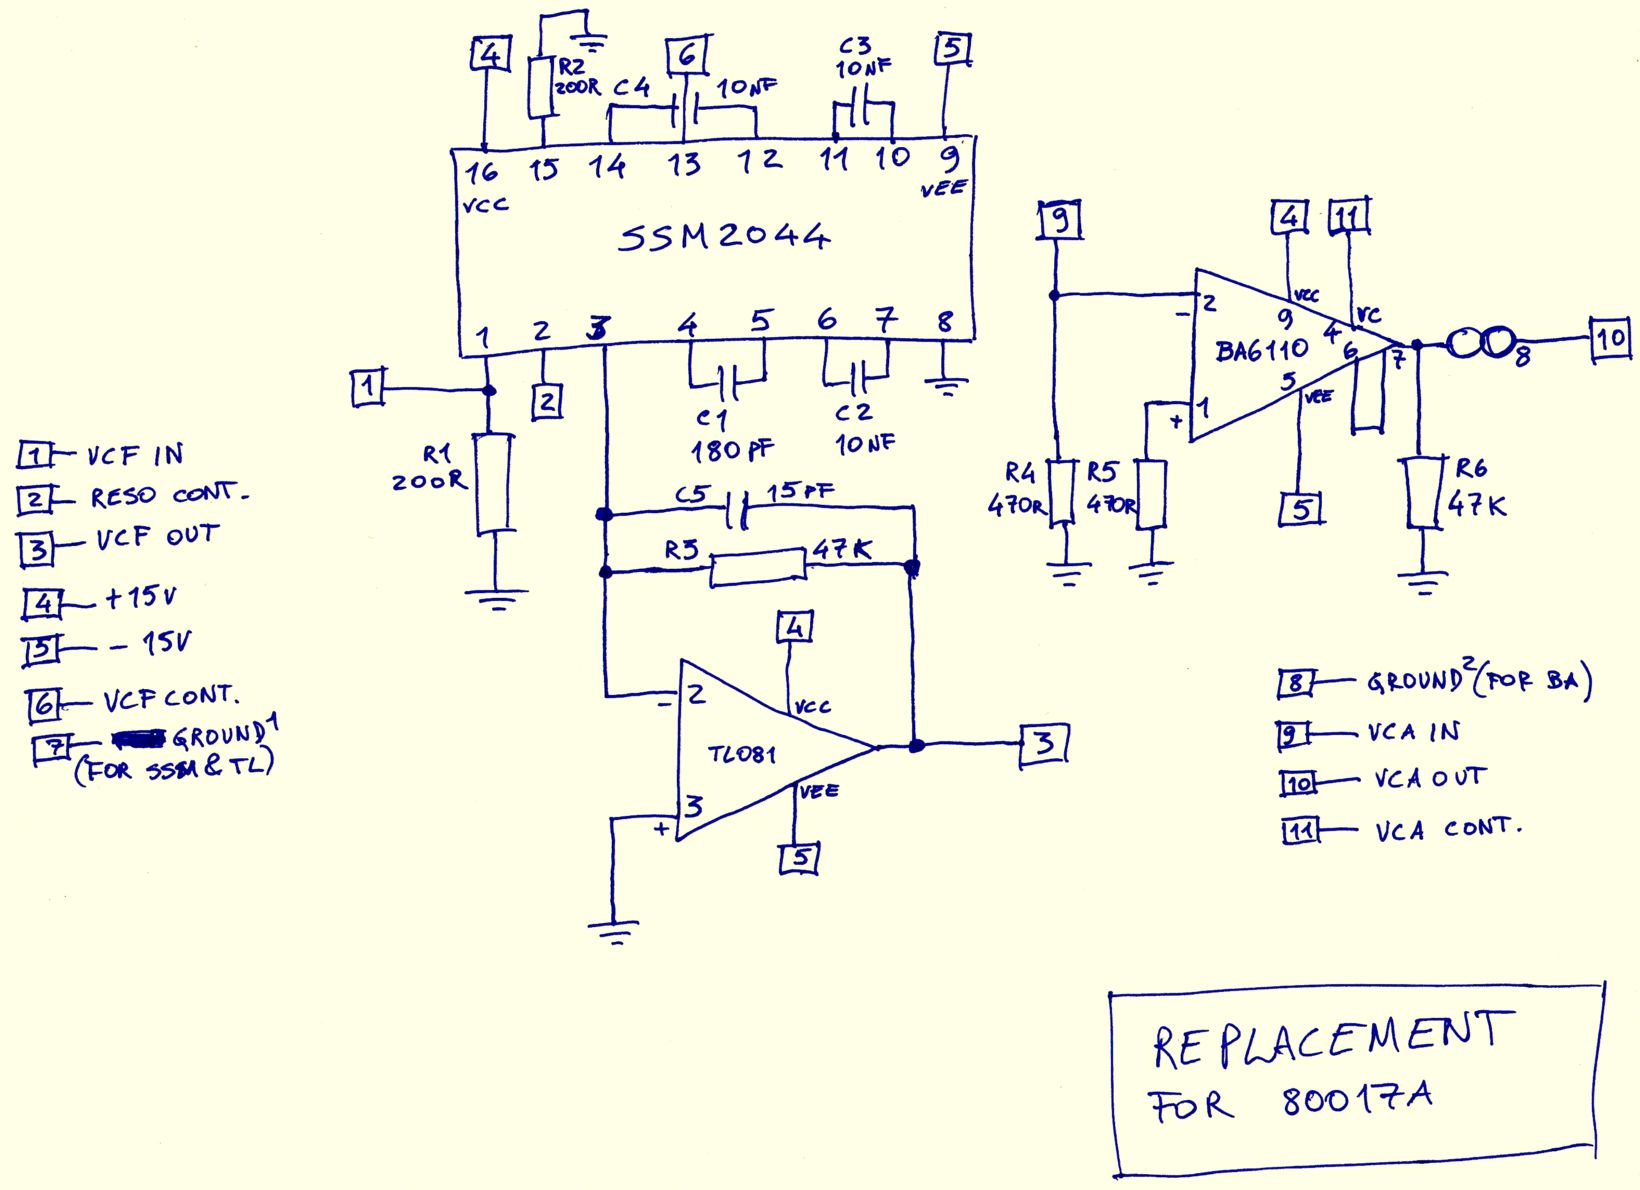 4
R2
200R
C4
6
10NF
C3
10NF
5
16 15 14 13 12 11 10 9
VCC
VEE
SSM2044
1 2 3 4 5 6 7 8
1
2
R1
200R
C1
180PF
C2
10NF
C5 15PF
R3 47K
4
2
-
VCC
TL081
3
+
VEE
5
3
1 VCF IN
2 RESO CONT.
3 VCF OUT
4 +15V
5 - 15V
6 VCF CONT.
7 GROUND1
(FOR SSM & TL)
9
4
11
2
-
VCC
9
4
VC
BA6110
6
7
8
10
5
VEE
1
+
5
R4
470R
R5
470R
R6
47K
8 GROUND2 (FOR BA)
9 VCA IN
10 VCA OUT
11 VCA CONT.
REPLACEMENT
FOR 80017A